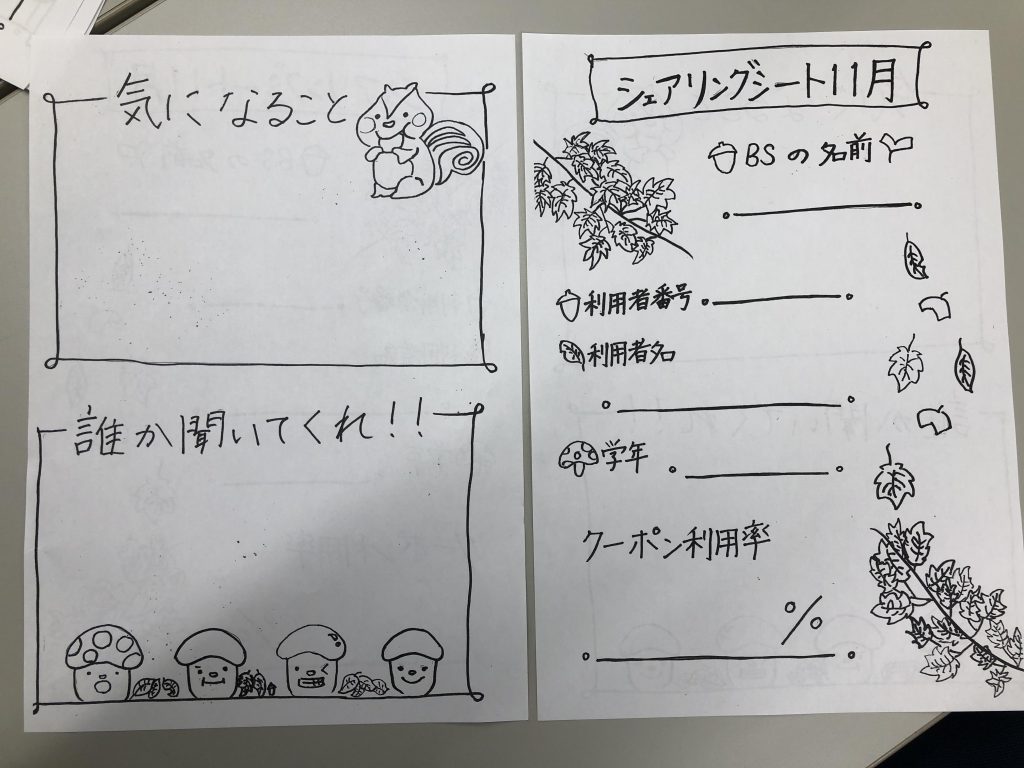 気になること
誰か聞いてくれ!!
シェアリングシート11月
BSの名前
利用者番号
利用者名
学年
クーポン利用率
%